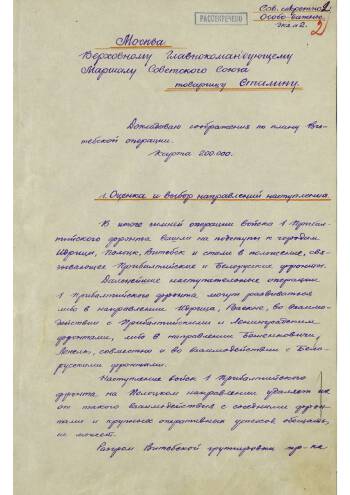 Сов. секретно
РАССЕКРЕЧЕНО
Особо важно
Экз. 2.
2
Москва
Верховному Главнокомандующему
Маршалу Советского Союза
товарищу Сталину.
Докладываю соображения по плану Ви-
тебской операции.
Карта 200.000.
1. Оценка и выбор направлений наступления.
В итоге зимней операции войска 1 Прибал-
тийского фронта вышли на подступы к городам
Идрица, Полоцк, Витебск и стали в положение, свя-
зывающее Прибалтийские и Белорусские фронты.
Дальнейшие наступательные операции
1 Прибалтийского фронта могут развиваться
либо в направлении Идрица, во взаимо-
действии с Прибалтийскими и Ленинградским
фронтами, либо в направлении Бешенковичи,
Лепель, совместно и во взаимодействии с Бело-
русскими фронтами.
Наступление войск 1 Прибалтийского
фронта на Полоцком направлении удаляет их
от такого взаимодействия с соседними фрон-
тами и крупных оперативных успехов обещать
не может.
Разгром Витебской группировки пр-ка